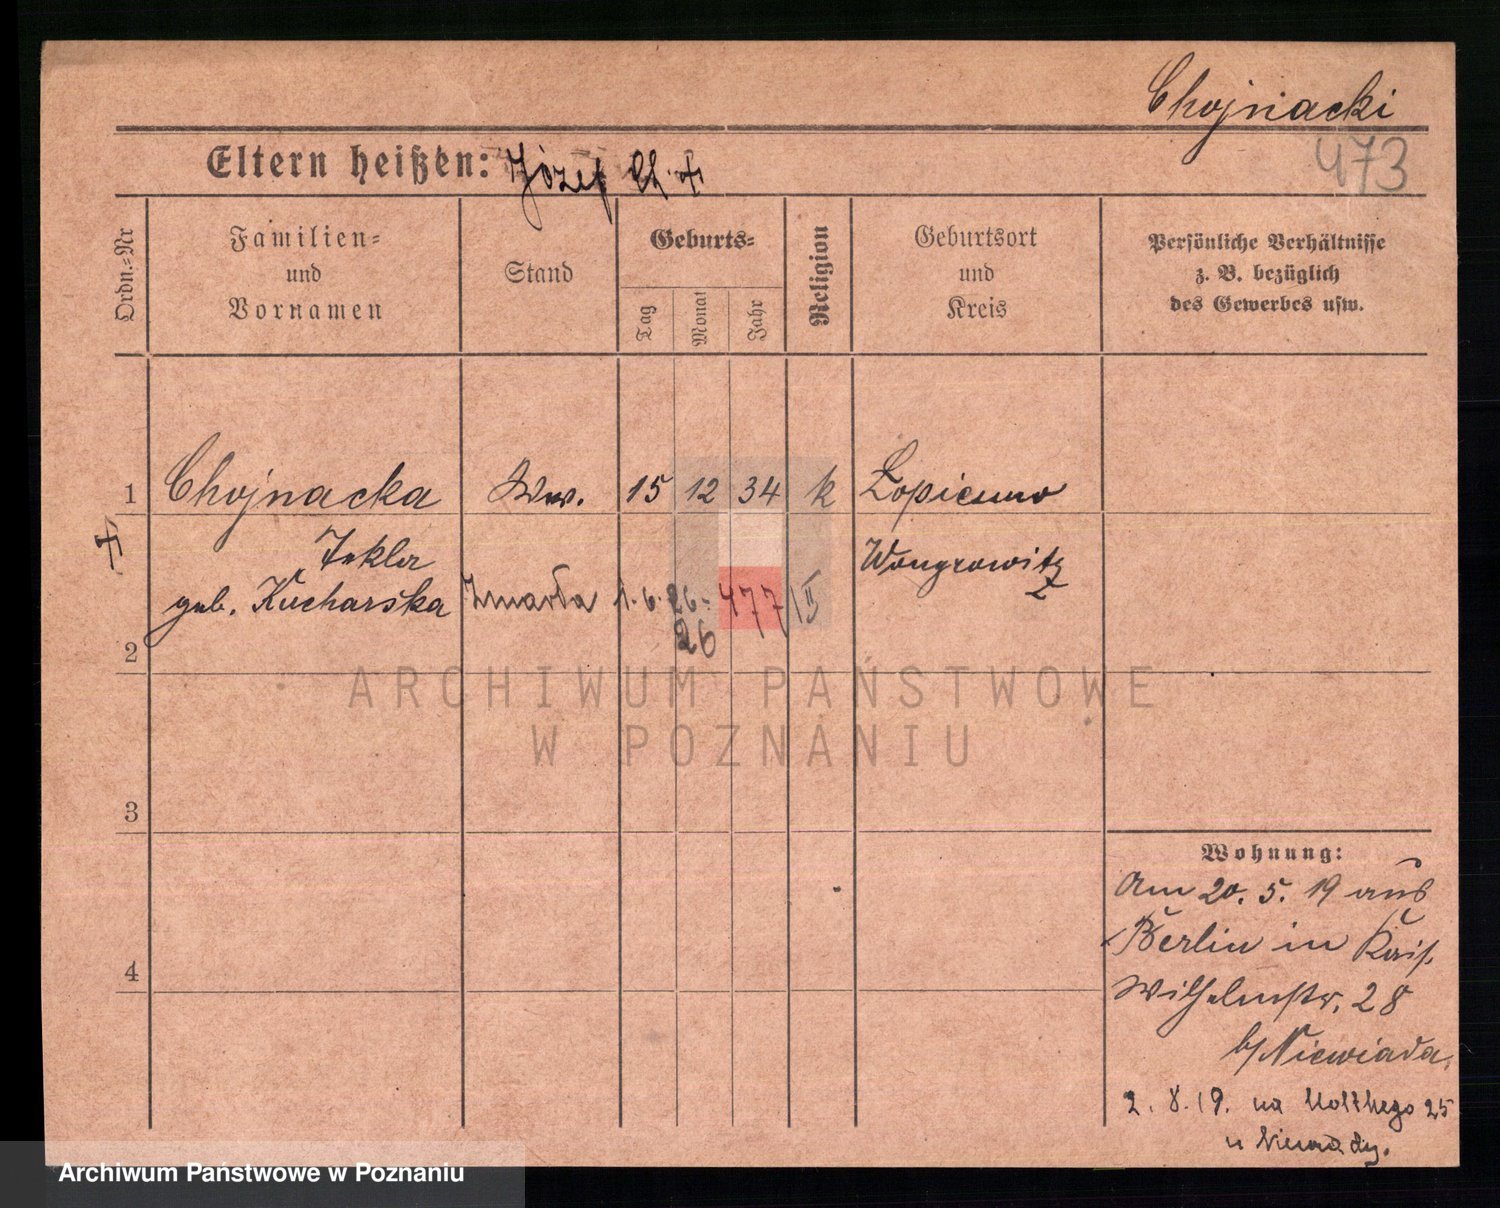 Chojnacki
473
Eltern heißen: Józef Ch.
Ordn.=Nr
Familien=
und
Vornamen
Stand
Geburts=
Tag
Monat
Jahr
Religion
Geburtsort
und
Kreis
Persönliche Verhältnisse
z. B. bezüglich
des Gewerbes usw.
1 Chojnacka Ww. 15 12 34 k Łopienno
Tekla Wongrowitz
geb. Kucharska Zmarła 1.6.26. 477/II
26
2
ARCHIWUM PAŃSTWOWE
W POZNANIU
3
Wohnung:
Am 20. 5. 19 aus
Berlin in Kais.
4
Wilhelmstr. 28
b/Niewiada.
2. 8. 19. na Moltkego 25
u Niewiady.
Archiwum Państwowe w Poznaniu